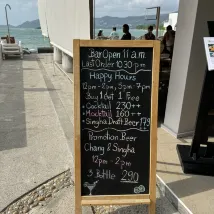 Bar Open 11 a.m.
Last Order 10:30 pm
Happy Hours
12pm - 2pm, 5pm 7pm
Buy 1 Get 1 Free
Cocktail 230++
Mocktail 160++
Singha Draft Beer 179
Promotion Beer
Chang & Singha
12pm - 2pm
3 Bottle 290